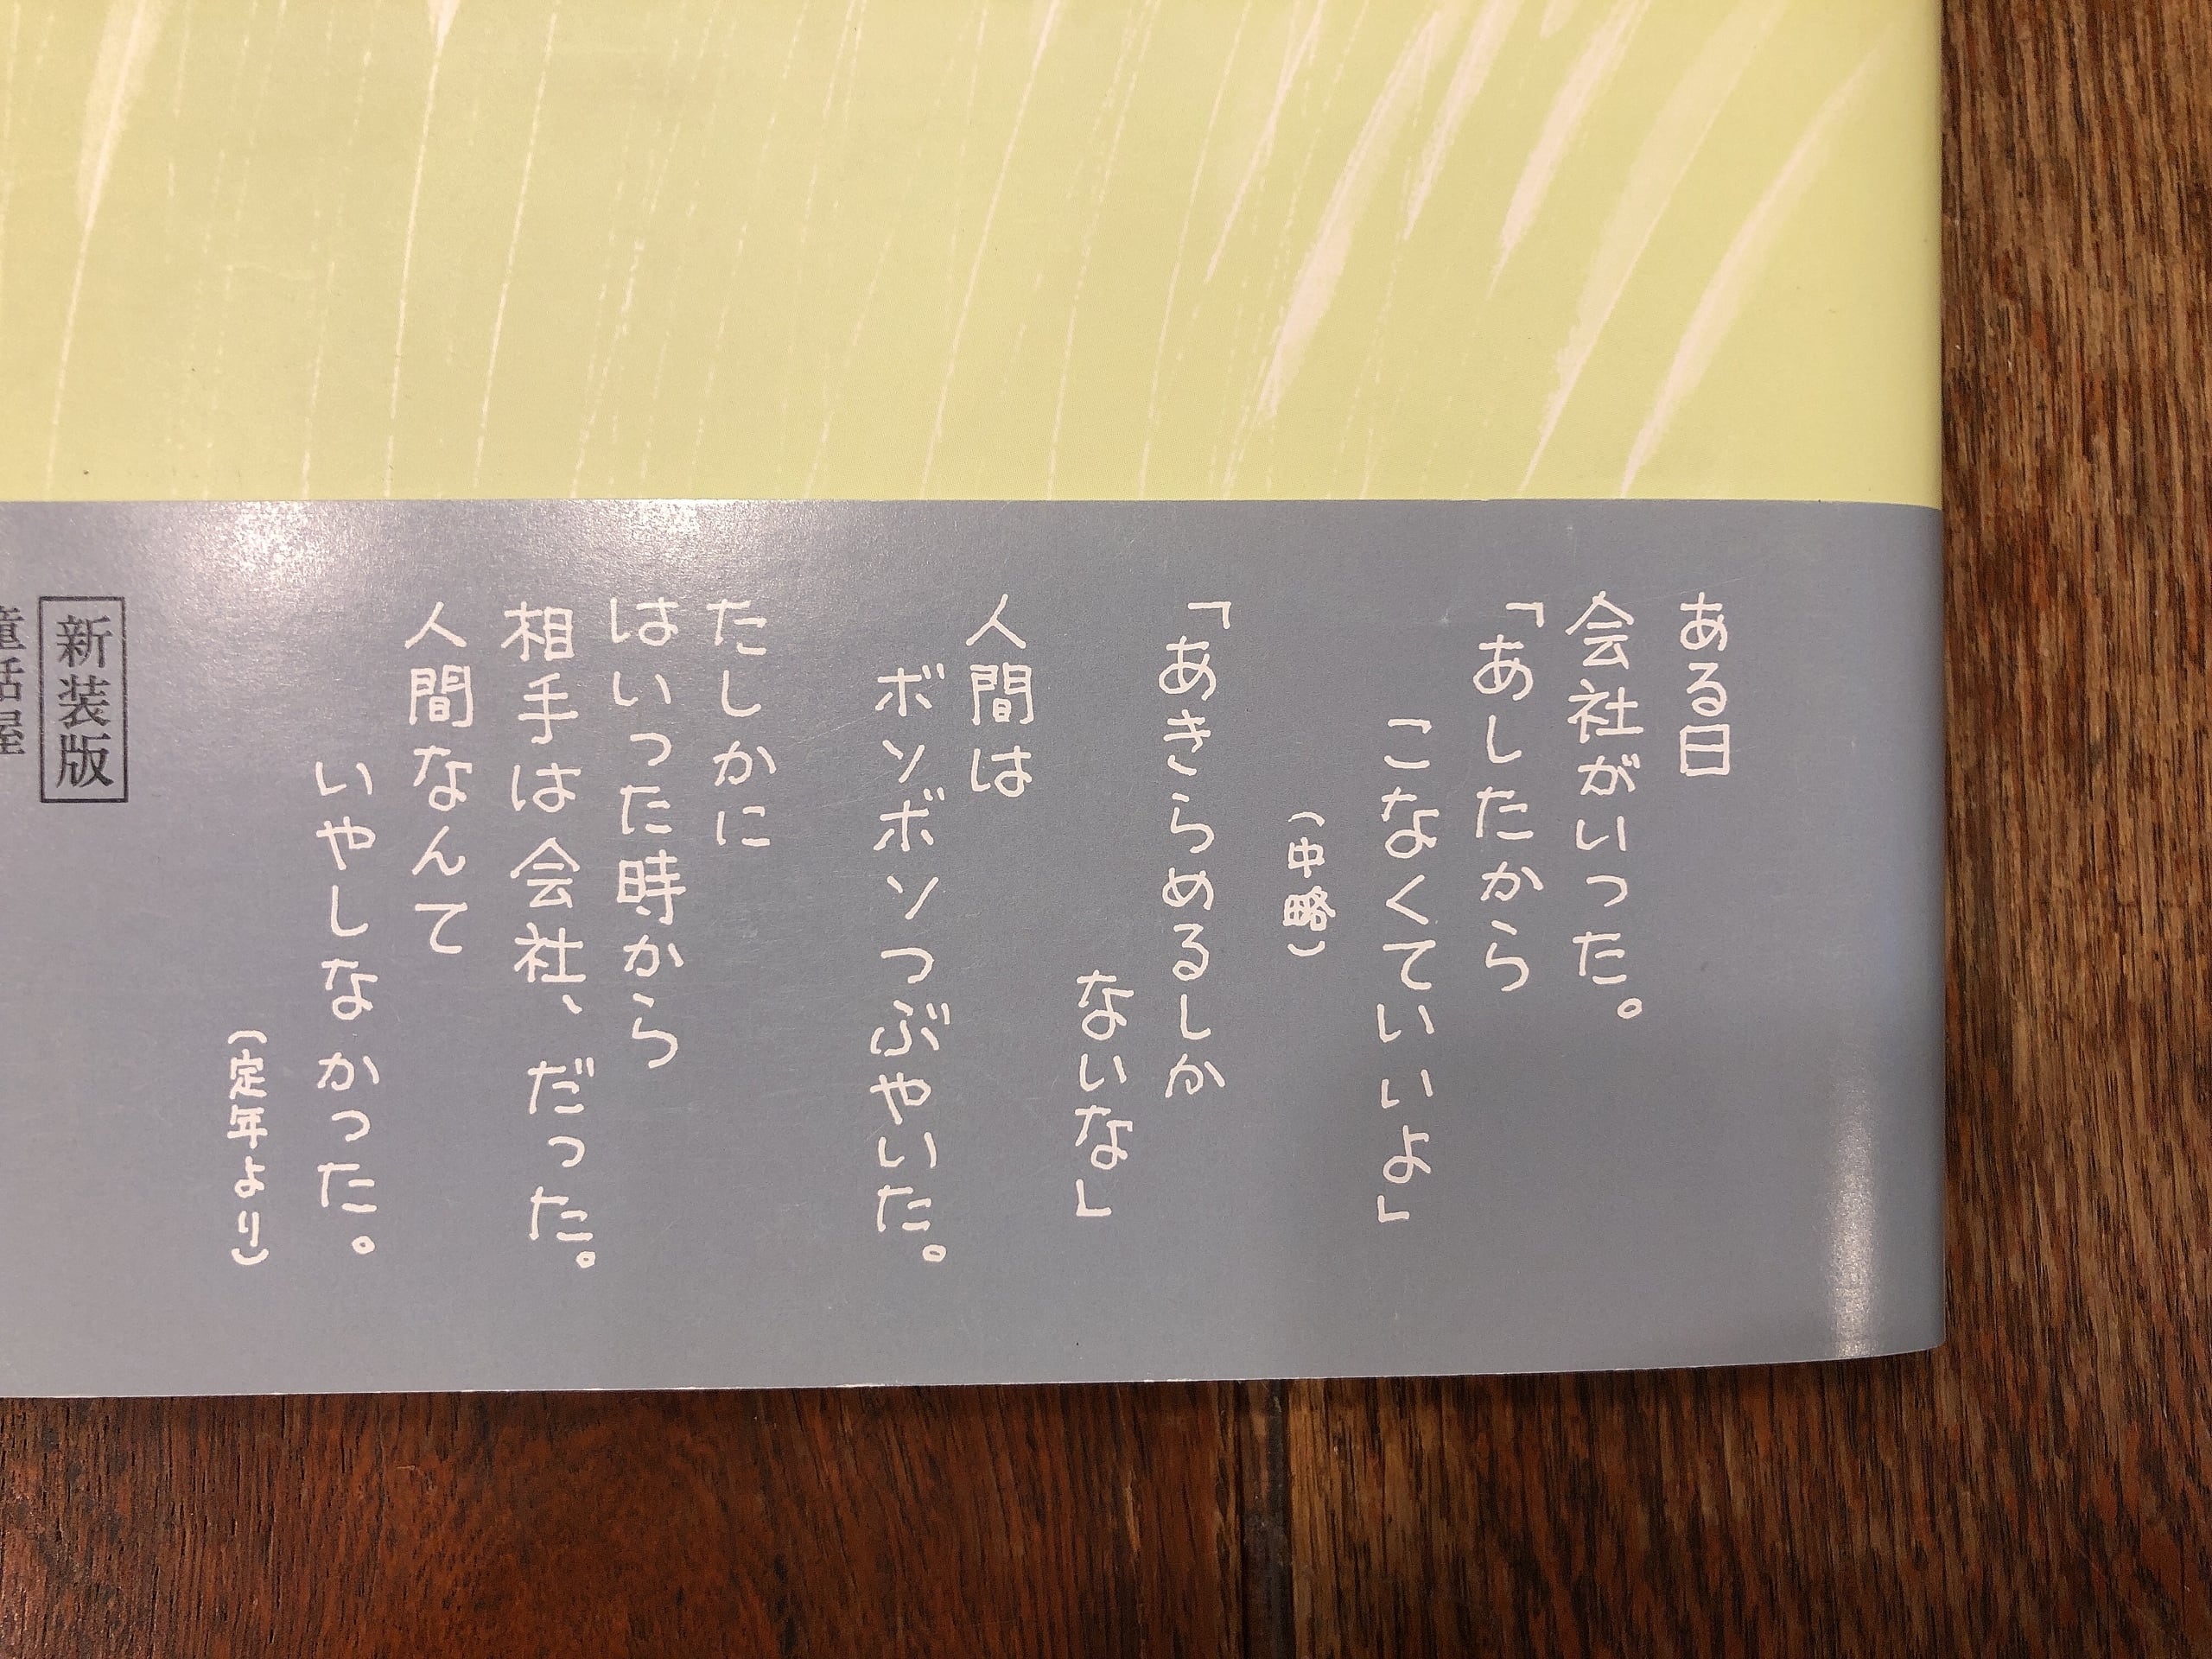 ある日
会社がいった。
「あしたから
こなくていいよ」
（中略）
「あきらめるしか
ないな」
人間は
ボソボソつぶやいた。
たしかに
はいった時から
相手は会社、だった。
人間なんて
いやしなかった。
（定年より）
新装版
童話屋